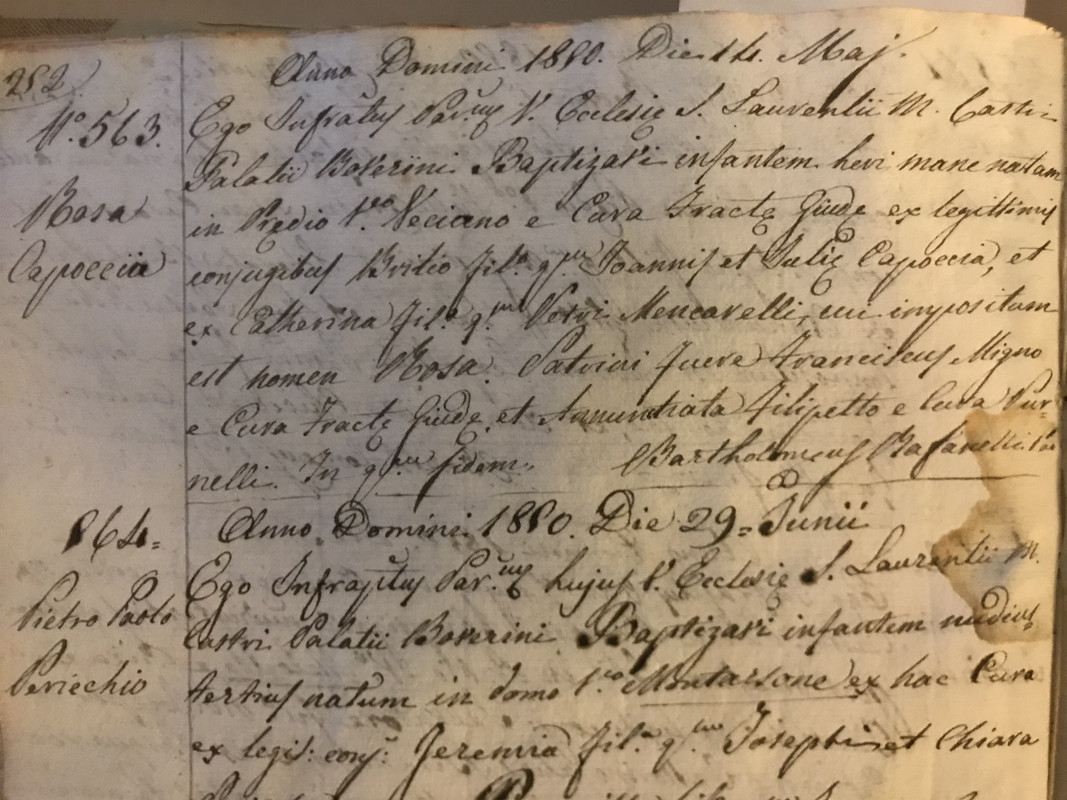 252
Anno Domini 1850. Die 14. Maj.
N.° 563.
Rosa
Capoccia
Ego Infratus Par.us V. Ecclesię S. Laurentii M. Castri
Palatii Boverini Baptizavi infantem heri mane natam
in Prędio V.to Veciano e Cura Fractę Giudę ex legittimis
conjugibus Britio fil.o q.m Joannis et Julię Capoccia, et
ex Catherina fil.a q.m Petri Mencarelli, cui impositum
est nomen Rosa. Patrini fuere Franciscus Migno
e Cura Fractę Giudę, et Annuntiata Filipetto e Cura Pur-
nelli. In q.um fidem. Bartholomeus Rafanelli
564=
Pietro Paolo
Periechio
Anno Domini 1850. Die 29= Junii
Ego Infraptus Par.us hujus V. Ecclesię S. Laurentii M.
Castri Palatii Boverini Baptizavi infantem nudius
tertius natum in domo V.to Montarsone ex hac Cura
ex legit: conj: Jeremia fil.o q.m Josephi et Chiara